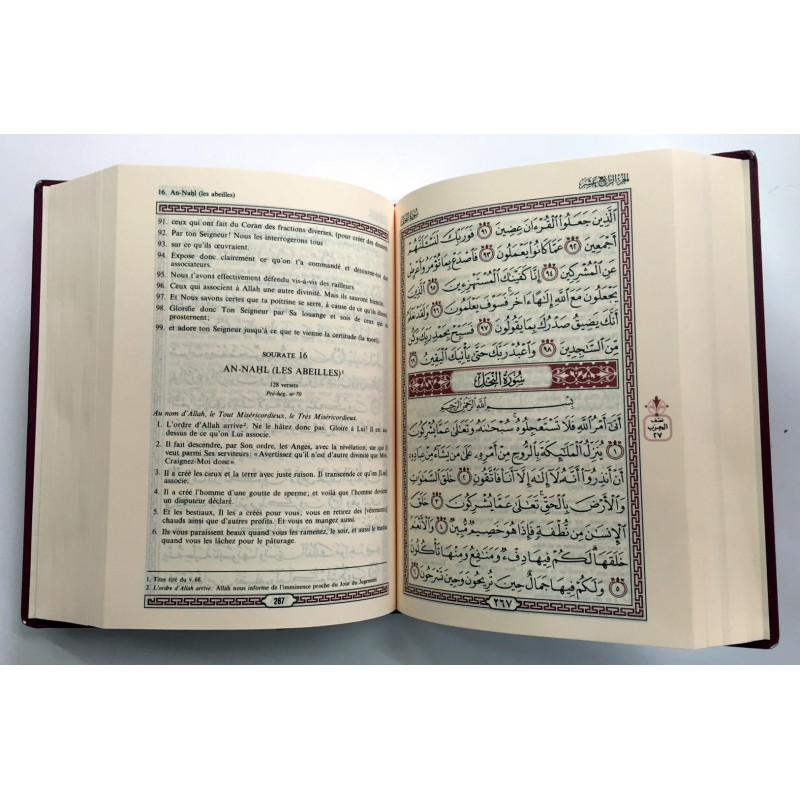 16. An-Naḥl (les abeilles)
91. ceux qui ont fait du Coran des fractions diverses, (pour créer des doutes)
92. Par ton Seigneur! Nous les interrogerons tous
93. sur ce qu'ils œuvraient.
94. Expose donc clairement ce qu'on t'a commandé et détourne-toi des
associateurs.
95. Nous t'avons effectivement défendu vis-à-vis des railleurs.
96. Ceux qui associent à Allah une autre divinité. Mais ils sauront bientôt.
97. Et Nous savons certes que ta poitrine se serre, à cause de ce qu'ils disent.
98. Glorifie donc Ton Seigneur par Sa louange et sois de ceux qui se
prosternent;
99. et adore ton Seigneur jusqu'à ce que te vienne la certitude (la mort).
SOURATE 16
AN-NAḤL (LES ABEILLES)¹
128 versets
Pré-hég. nº 70
Au nom d'Allah, le Tout Miséricordieux, le Très Miséricordieux.
1. L'ordre d'Allah arrive². Ne le hâtez donc pas. Gloire à Lui! Il est au-
dessus de ce qu'on Lui associe.
2. Il fait descendre, par Son ordre, les Anges, avec la révélation, sur qui Il
veut parmi Ses serviteurs: «Avertissez qu'il n'est d'autre divinité que Moi.
Craignez-Moi donc».
3. Il a créé les cieux et la terre avec juste raison. Il transcende ce qu'on [Lui]
associe.
4. Il a créé l'homme d'une goutte de sperme; et voilà que l'homme devient
un disputeur déclaré.
5. Et les bestiaux, Il les a créés pour vous; vous en retirez des [vêtements]
chauds ainsi que d'autres profits. Et vous en mangez aussi.
6. Ils vous paraissent beaux quand vous les ramenez, le soir, et aussi le matin
quand vous les lâchez pour le pâturage.
1. Titre tiré du v. 68.
2. L'ordre d'Allah arrive: Allah nous informe de l'imminence proche du Jour du Jugement.
267
الجزء الرابع عشر
ٱلَّذِينَ جَعَلُوا۟ ٱلْقُرْءَانَ عِضِينَ ٩١ فَوَرَبِّكَ لَنَسْـَٔلَنَّهُمْ
أَجْمَعِينَ ٩٢ عَمَّا كَانُوا۟ يَعْمَلُونَ ٩٣ فَٱصْدَعْ بِمَا تُؤْمَرُ وَأَعْرِضْ
عَنِ ٱلْمُشْرِكِينَ ٩٤ إِنَّا كَفَيْنَٰكَ ٱلْمُسْتَهْزِءِينَ ٩٥ ٱلَّذِينَ
يَجْعَلُونَ مَعَ ٱللَّهِ إِلَٰهًا ءَاخَرَ فَسَوْفَ يَعْلَمُونَ ٩٦ وَلَقَدْ نَعْلَمُ
أَنَّكَ يَضِيقُ صَدْرُكَ بِمَا يَقُولُونَ ٩٧ فَسَبِّحْ بِحَمْدِ رَبِّكَ وَكُن
مِّنَ ٱلسَّٰجِدِينَ ٩٨ وَٱعْبُدْ رَبَّكَ حَتَّىٰ يَأْتِيَكَ ٱلْيَقِينُ ٩٩
سُورَةُ النَّحْلِ
بِسْمِ ٱللَّهِ ٱلرَّحْمَٰنِ ٱلرَّحِيمِ
أَتَىٰٓ أَمْرُ ٱللَّهِ فَلَا تَسْتَعْجِلُوهُ سُبْحَٰنَهُۥ وَتَعَٰلَىٰ عَمَّا يُشْرِكُونَ
١ يُنَزِّلُ ٱلْمَلَٰٓئِكَةَ بِٱلرُّوحِ مِنْ أَمْرِهِۦ عَلَىٰ مَن يَشَآءُ مِنْ عِبَادِهِۦٓ
أَنْ أَنذِرُوٓا۟ أَنَّهُۥ لَآ إِلَٰهَ إِلَّآ أَنَا۠ فَٱتَّقُونِ ٢ خَلَقَ ٱلسَّمَٰوَٰتِ
وَٱلْأَرْضَ بِٱلْحَقِّ تَعَٰلَىٰ عَمَّا يُشْرِكُونَ ٣ خَلَقَ
ٱلْإِنسَٰنَ مِن نُّطْفَةٍ فَإِذَا هُوَ خَصِيمٌ مُّبِينٌ ٤ وَٱلْأَنْعَٰمَ
خَلَقَهَا لَكُمْ فِيهَا دِفْءٌ وَمَنَٰفِعُ وَمِنْهَا تَأْكُلُونَ
٥ وَلَكُمْ فِيهَا جَمَالٌ حِينَ تُرِيحُونَ وَحِينَ تَسْرَحُونَ ٦
نصف
الحزب
٢٧
٢٦٧